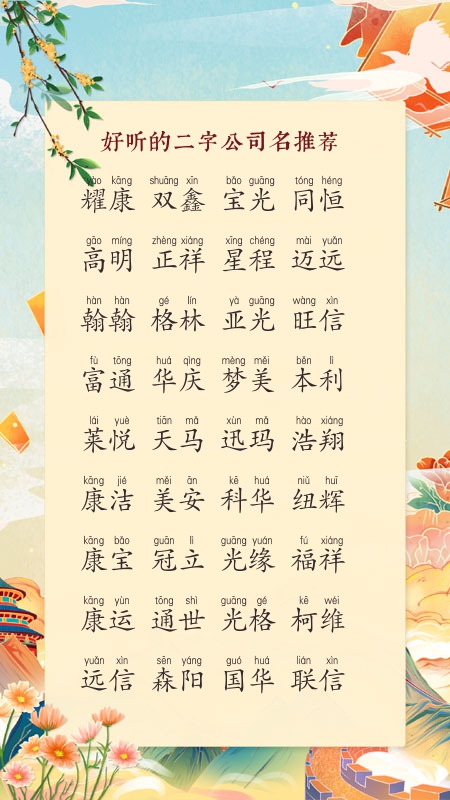 好听的二字公司名推荐
yào kāng shuāng xīn bǎo guāng tóng héng
耀康 双鑫 宝光 同恒
gāo míng zhèng xiáng xīng chéng mài yuǎn
高明 正祥 星程 迈远
hàn hàn gé lín yà guāng wàng xìn
翰翰 格林 亚光 旺信
fù tōng huá qìng mèng měi běn lì
富通 华庆 梦美 本利
lái yuè tiān mǎ xùn mǎ hào xiáng
莱悦 天马 迅玛 浩翔
kāng jié měi ān kē huá niǔ huī
康洁 美安 科华 纽辉
kāng bǎo guān lì guāng yuán fú xiáng
康宝 冠立 光缘 福祥
kāng yùn tōng shì guāng gé kē wéi
康运 通世 光格 柯维
yuǎn xìn sēn yáng guó huá lián xìn
远信 森阳 国华 联信